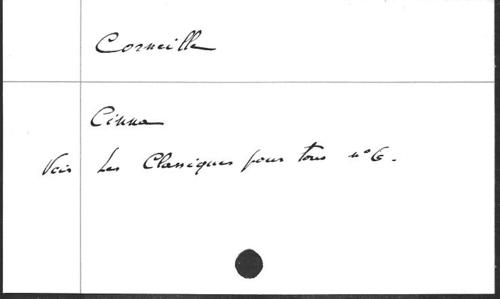 Corneille
Cinna
Voir Les Classiques pour tous n° 6.